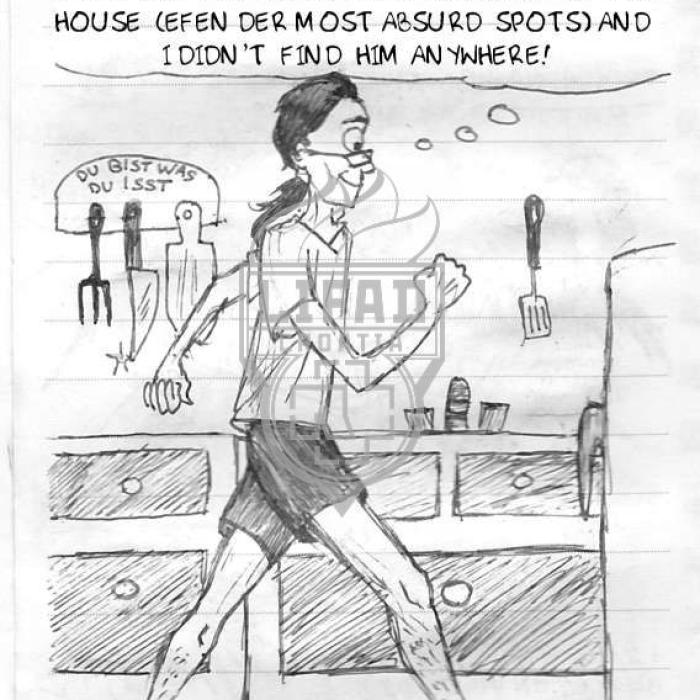 HOUSE (EFEN DER MOST ABSURD SPOTS) AND
I DIDN'T FIND HIM ANYWHERE!
DU BIST WAS
DU ISST
LIFAD
CROATIA